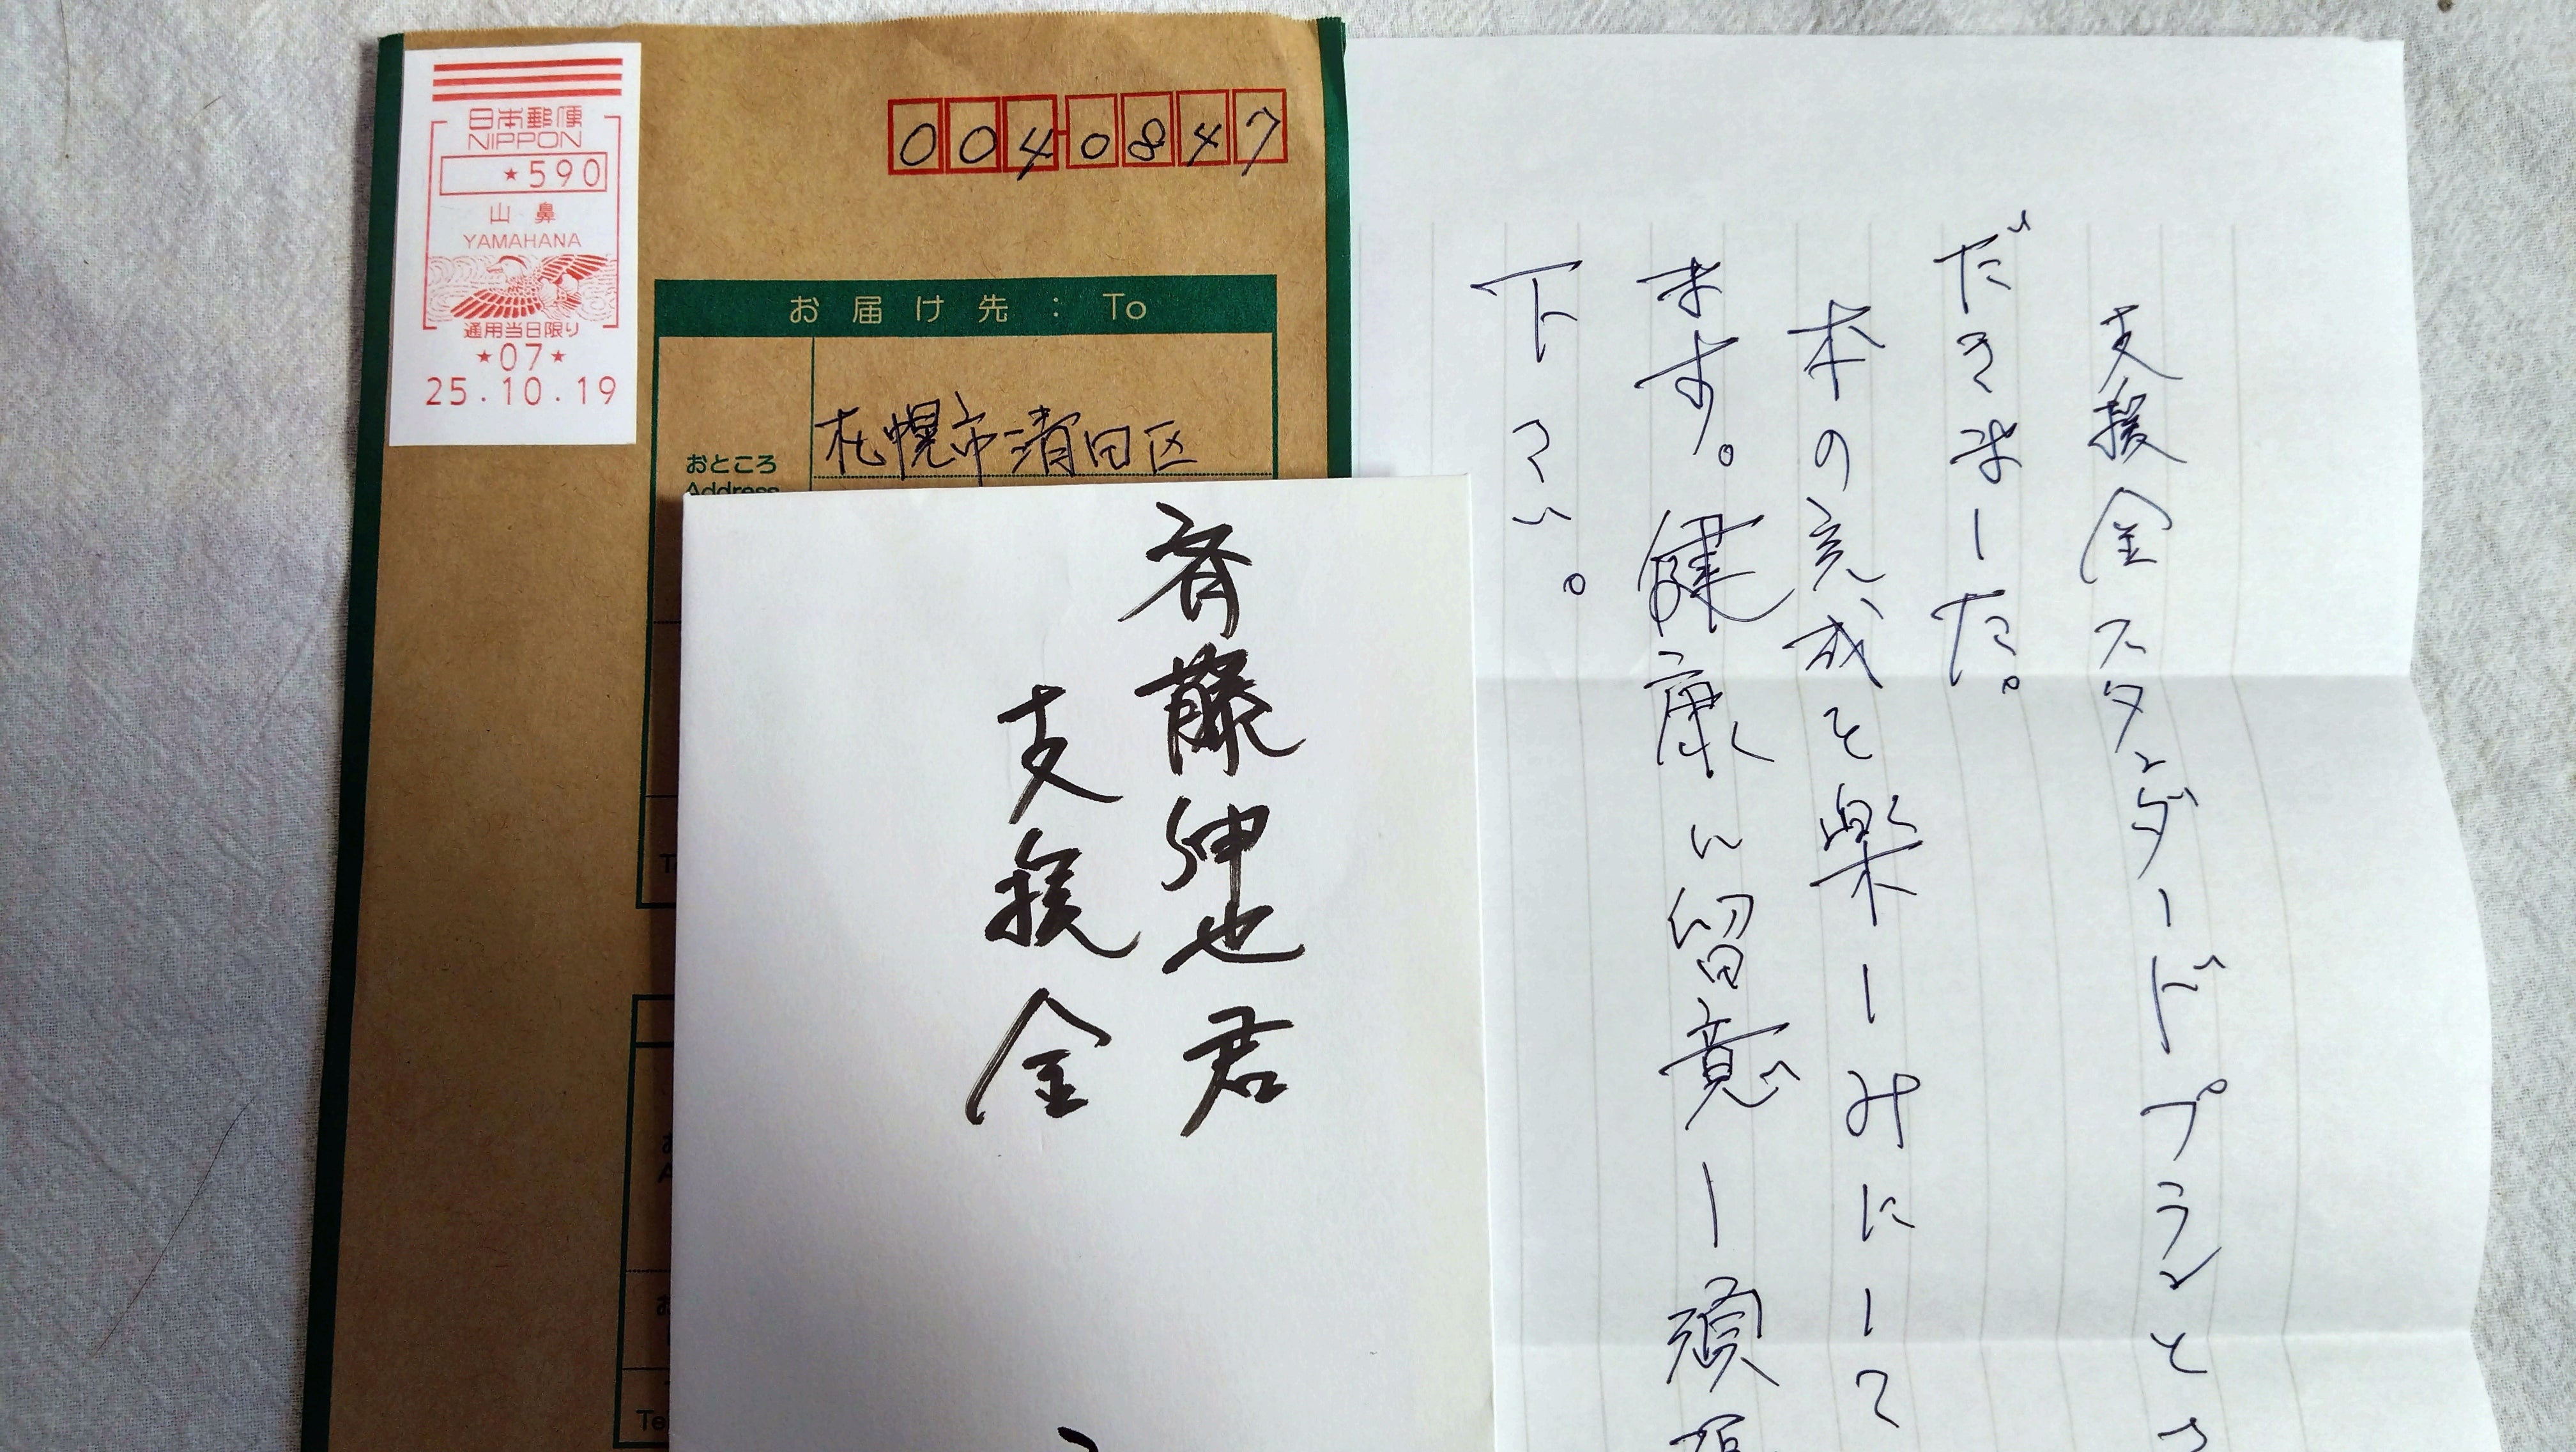 日本郵便
NIPPON
*590
山鼻
YAMAHANA
通用当日限り
*07*
25.10.19
0040847
お届け先：To
おところ
Address
札幌市清田区
斉藤紳也君
支援金
支援金スタンダードプランと
だきました。
本の完成を楽しみにして
ます。健康に留意し頑張
下さい。